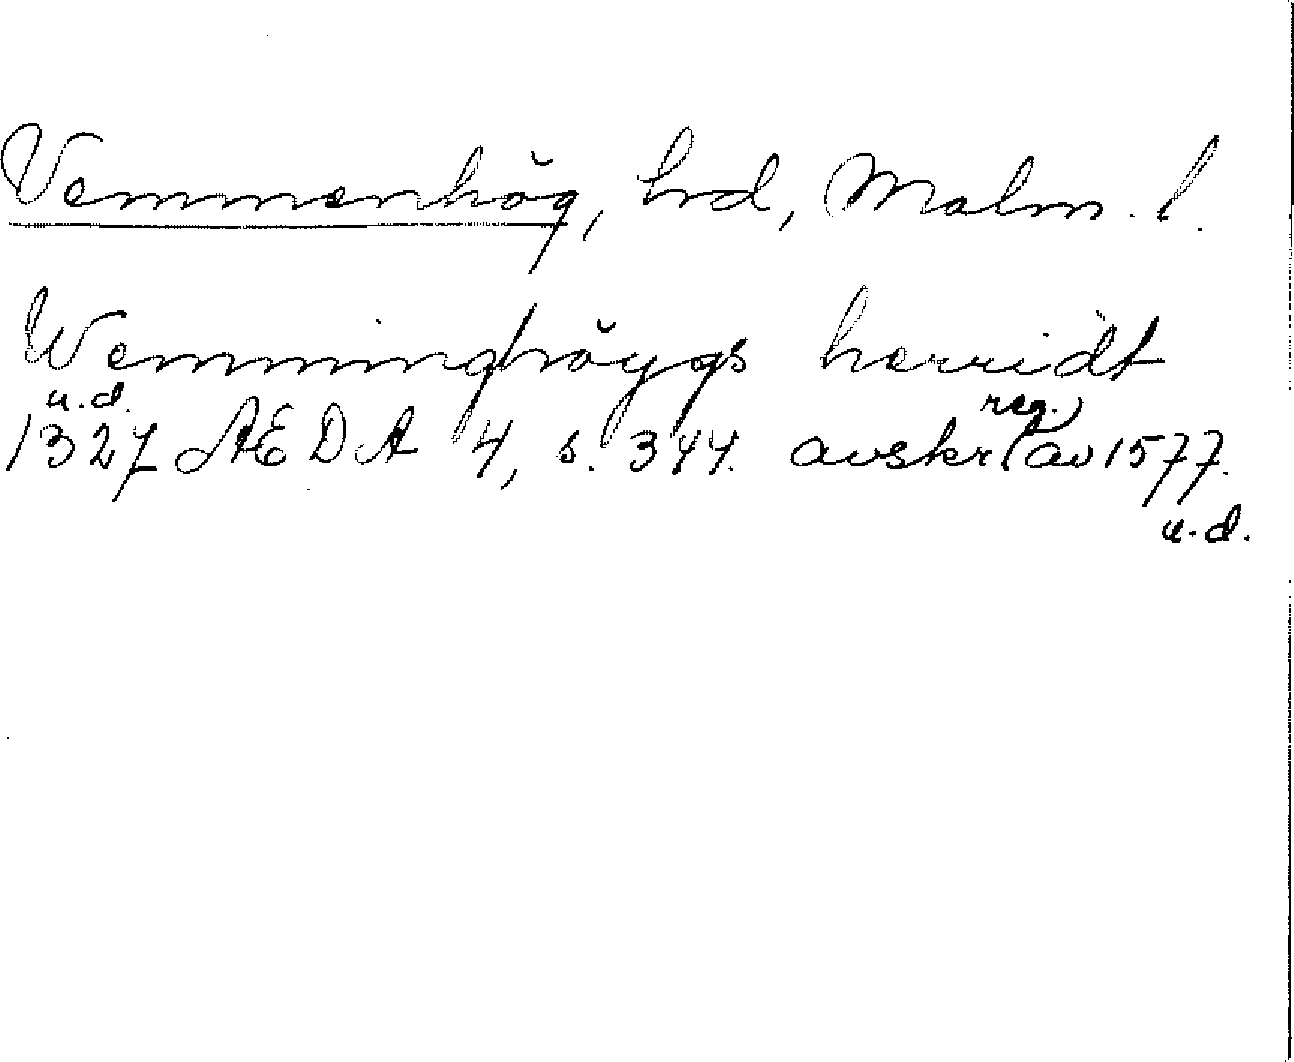 Vemmenhög, hrd, Malm. l.
Wemminghöygs herridt
u.d.
1327 ÆDA 4, s. 344. avskr. (reg.) av 1577.
u.d.